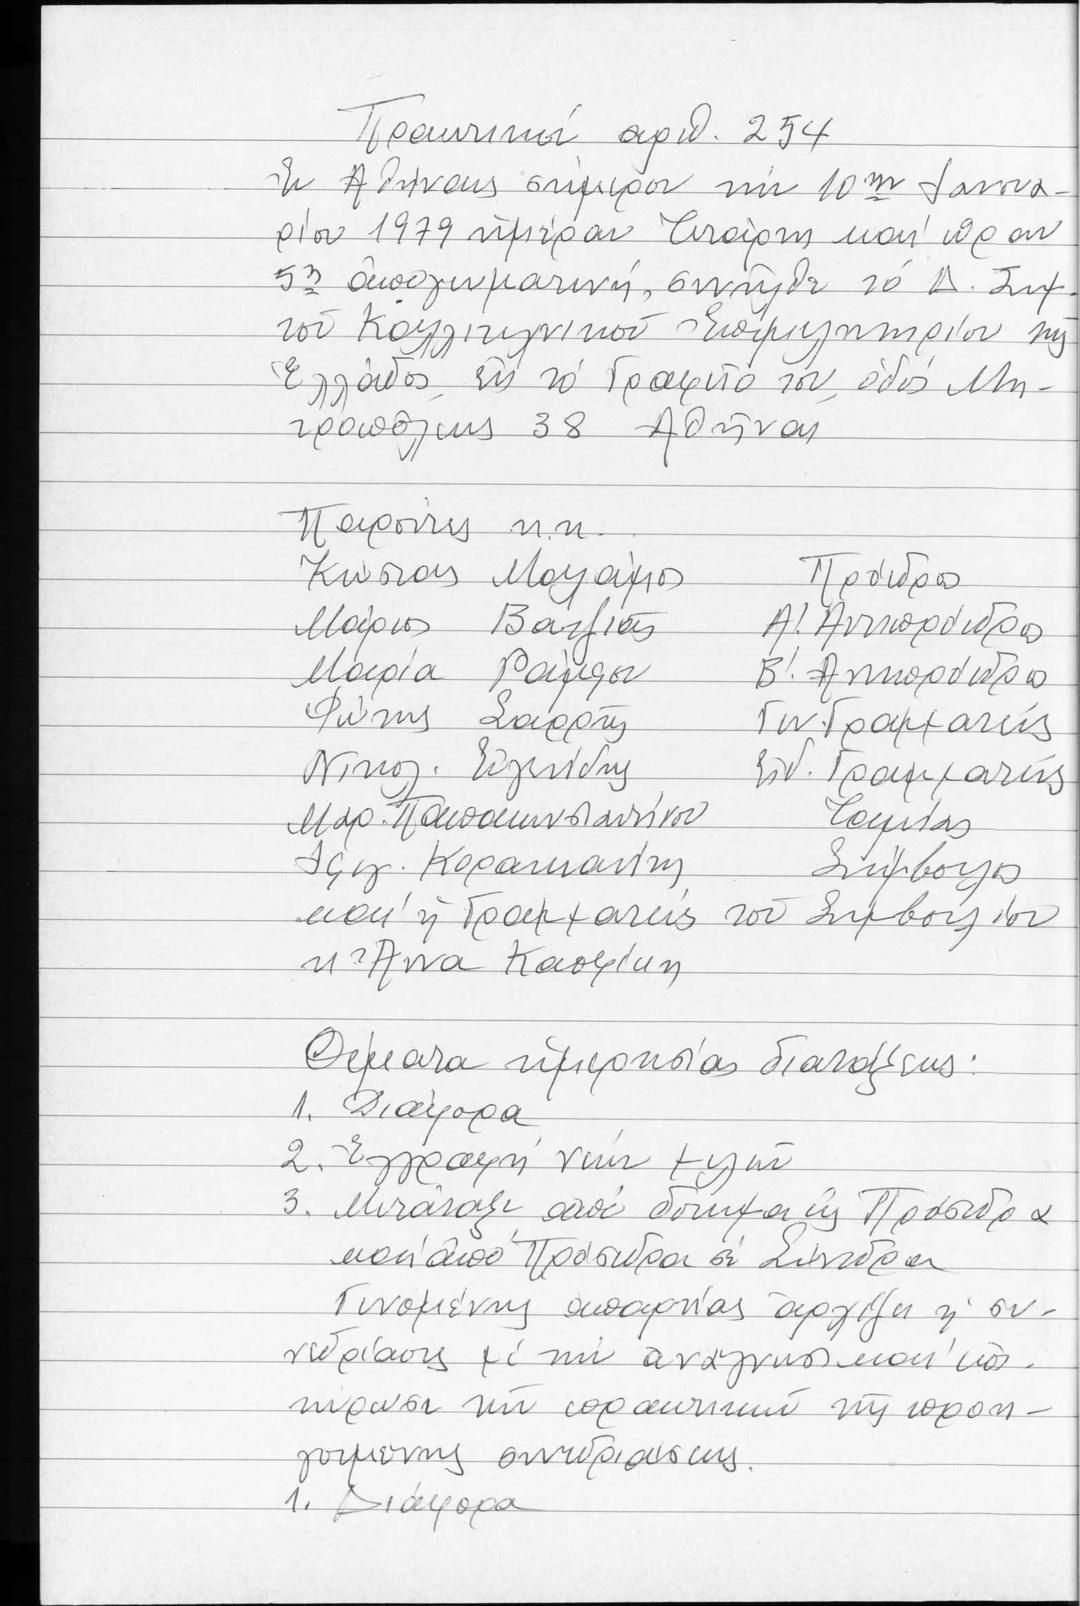 Πρακτικό αριθ. 254
Ἐν Ἀθήναις σήμερον τήν 10ην Ἰανουα-
ρίου 1979 ἡμέραν Τετάρτη καί ὥραν
5η ἀπογευματινή, συνῆλθε τό Δ. Συμ.
τοῦ Καλλιτεχνικοῦ Ἐπιμελητηρίου τῆς
Ἑλλάδος, εἰς τό Γραφεῖο του, ὁδός Μη-
τροπόλεως 38 Ἀθῆναι
Παρόντες κ.κ.
Κώστας Μαλάμος Πρόεδρος
Μάριος Βατζιᾶς Α'. Ἀντιπρόεδρος
Μαρία Β'. Ἀντιπρόεδρος
Φώτης Σαρρῆς Γεν. Γραμματεύς
Νικολ. Εὐγενίδης Εἰδ. Γραμματεύς
Μαρ. Παπακωνσταντίνου Ταμίας
Κορακιανίτης Σύμβουλος
καί ἡ Γραμματεύς τοῦ Συμβουλίου
κ Ἄννα Κασφίκη
Θέματα ἡμερησίας διατάξεως:
1. Διάφορα
2. Ἐγγραφή νέων μελῶν
3. Μετάταξι ἀπό δόκιμα εἰς Πρόσεδρα
καί ἀπό Πρόσεδρα σέ Σύνεδρα
Γινομένης ἀπαρτίας ἀρχίζει ἡ συ-
νεδρίασις μέ τήν ἀνάγνωσι καί ἐπι-
κύρωσι τῶν πρακτικῶν τῆς προη-
γουμένης συνεδριάσεως.
1. Διάφορα